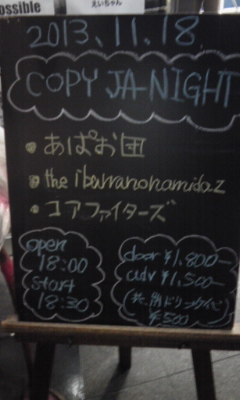 ossible
えいちゃん
2013.11.18
COPY JA-NIGHT
・あぱお団
・the ibarranonamidaz
・コアファイターズ
open
18:00
start
18:30
door ¥1,800-
adv ¥1,500-
(共に別ドリンクダイ
¥500